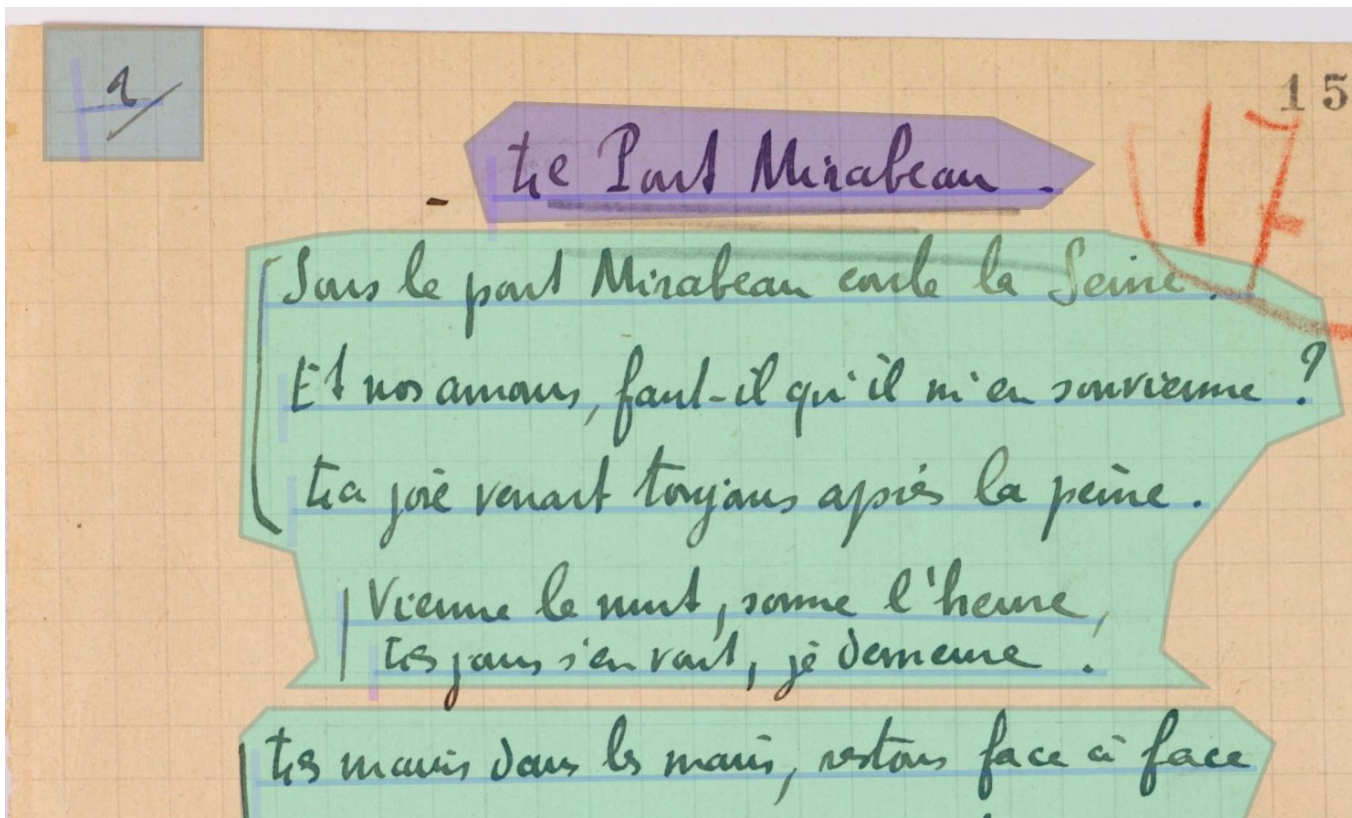 1/
15
17
- Le Pont Mirabeau .
Sous le pont Mirabeau coule la Seine .
Et nos amours, faut-il qu'il m'en souvienne ?
La joie venait toujours après la peine .
Vienne la nuit, sonne l'heure,
Les jours s'en vont, je demeure .
Les mains dans les mains, restons face à face